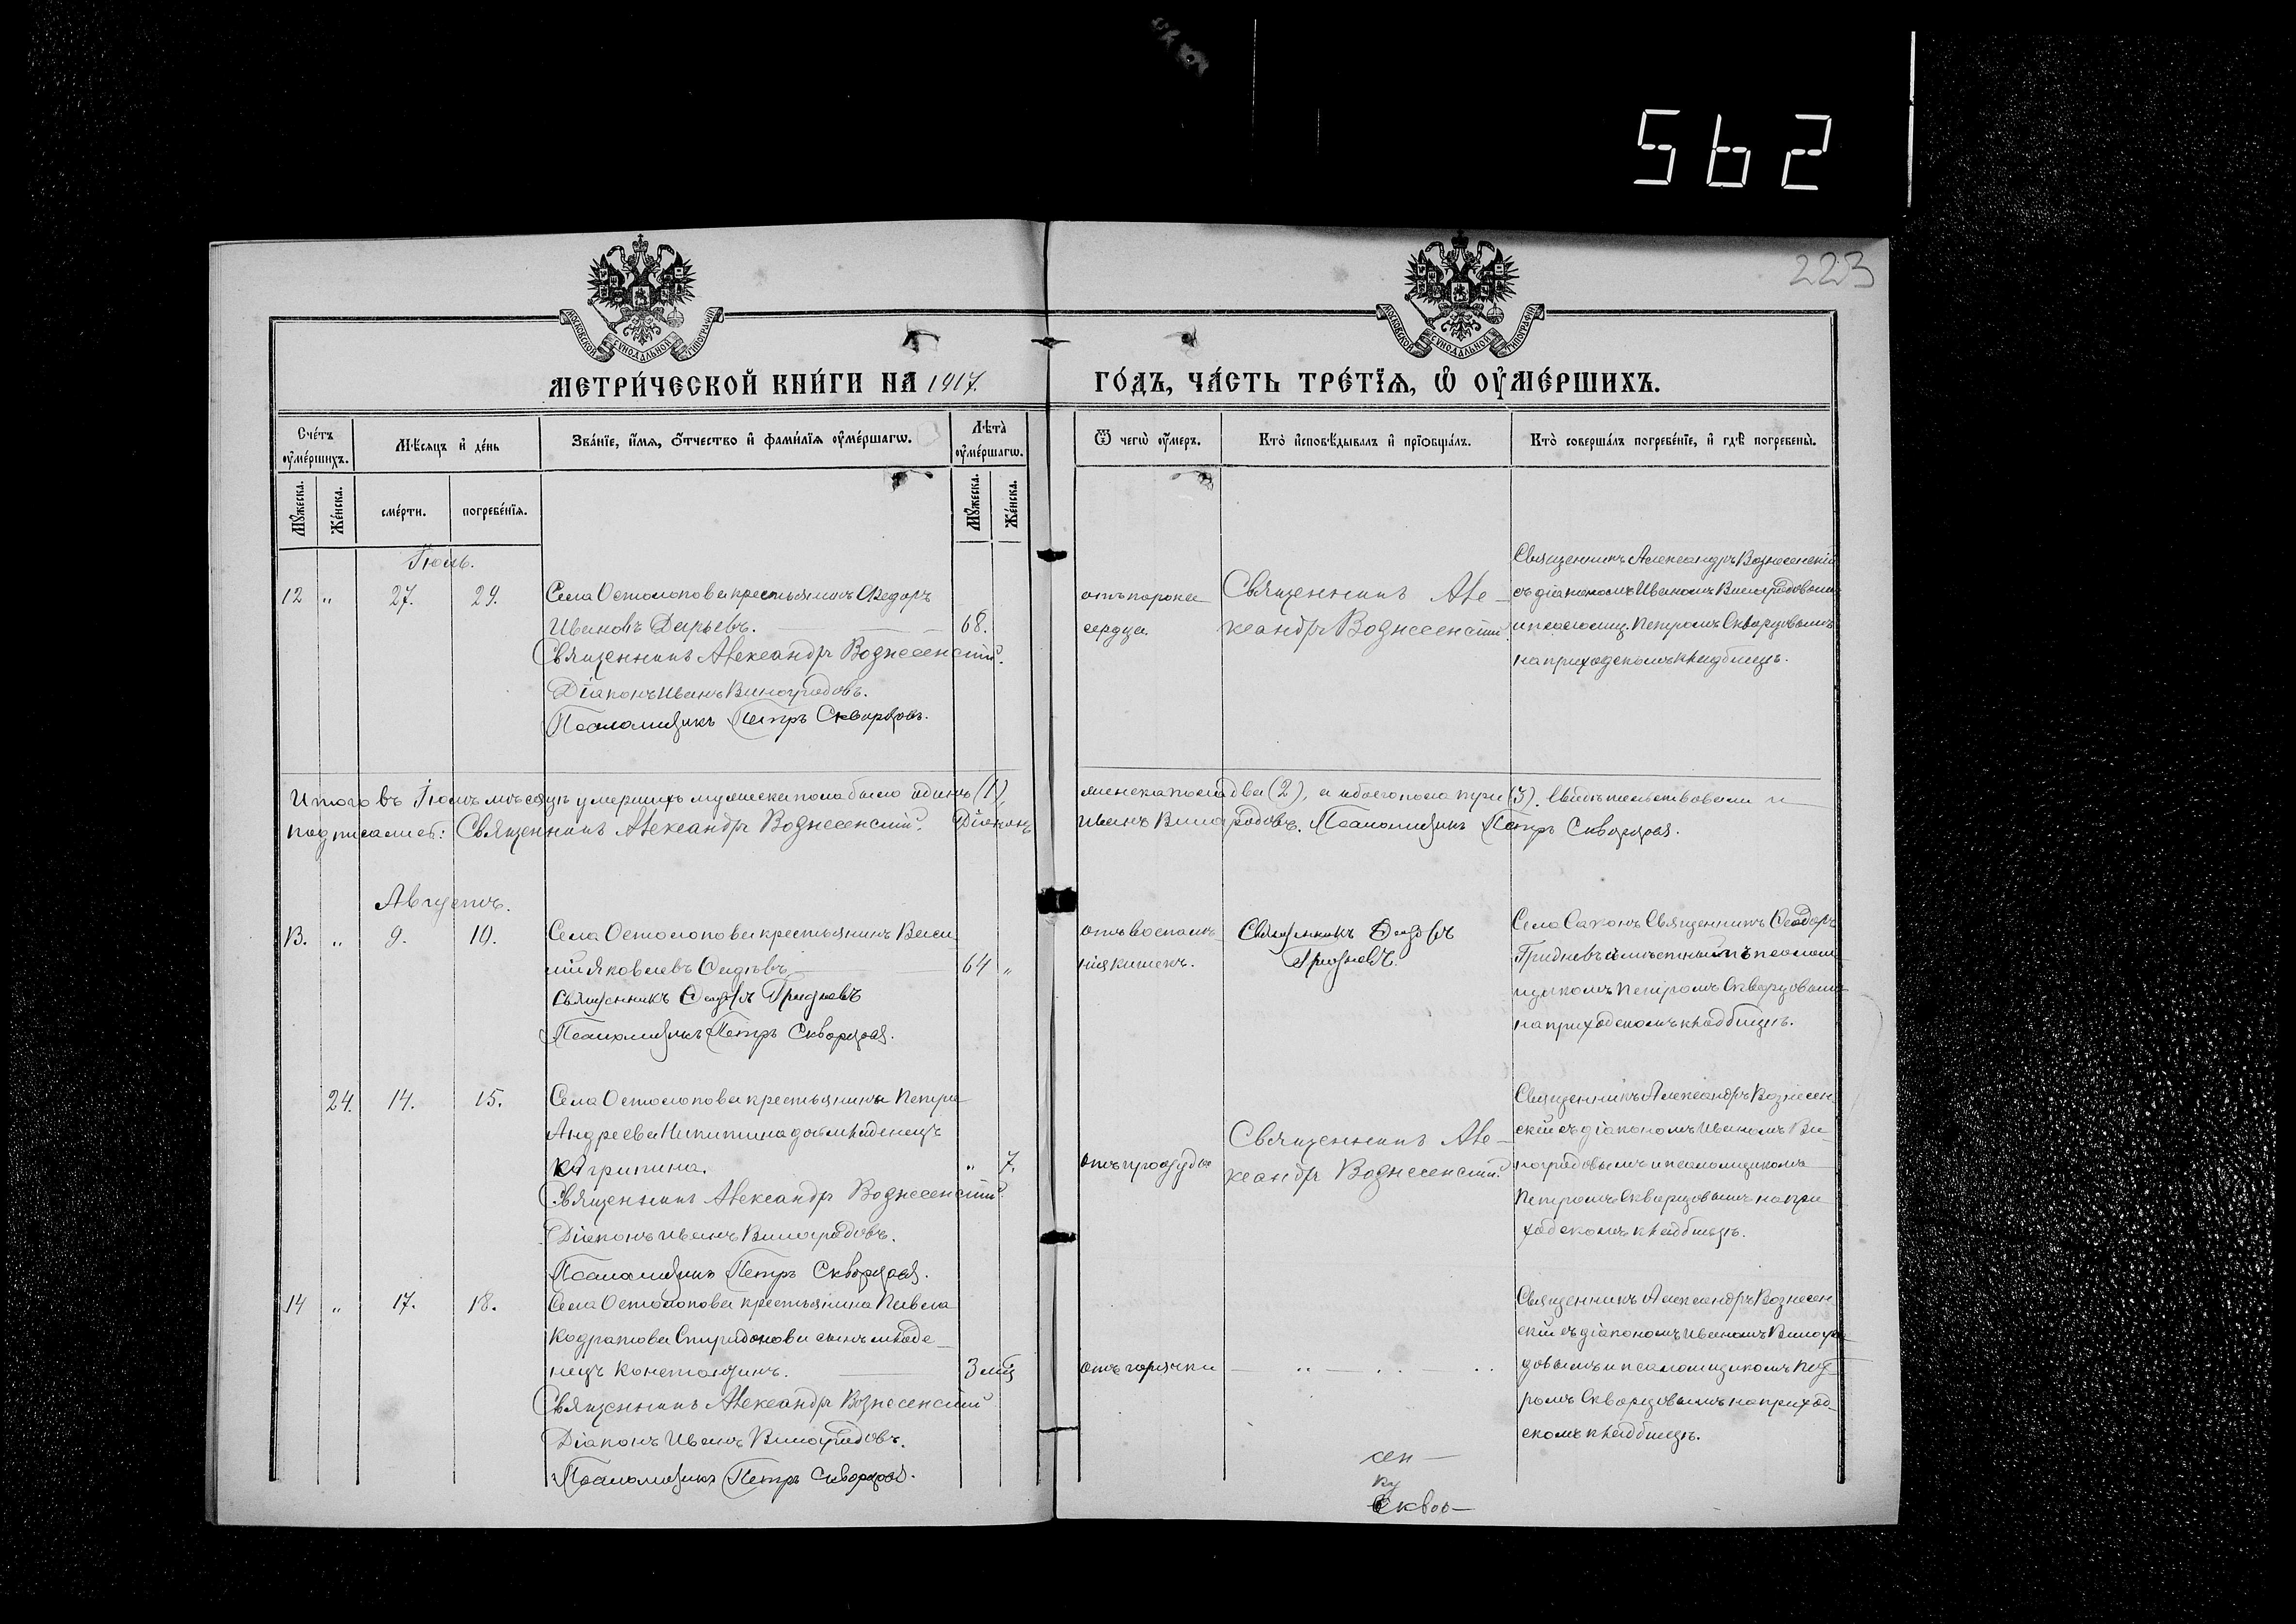 562
223
МОСКОВСКОЙ СѴНОДАЛЬНОЙ ТИПОГРАФІИ
МОСКОВСКОЙ СѴНОДАЛЬНОЙ ТИПОГРАФІИ
МЕТРИ́ЧЕСКОЙ КНИ́ГИ НА 1917.
ГО́ДЪ, ЧА́СТЬ ТРЕ́ТЇѦ, Ѽ ОУ҆МЕ́РШИХЪ.
Сче́тъ оу҆ме́ршихъ.
Мѣ́сяцъ и҆ де́нь
Зва́нїе, и҆́мѧ, ѻ҆́тчество и҆ фами́лїѧ оу҆ме́ршагѡ.
Лѣ́та оу҆ме́ршагѡ.
Ѿ чегѡ̀ оу҆́меръ.
Кто̀ и҆сповѣ́дывалъ и҆ прїѡбща́лъ.
Кто̀ соверша́лъ погребе́нїе, и҆ гдѣ̀ погребены̀.
Мꙋ́жеска.
Же́нска.
сме́рти.
погребе́нїѧ.
Мꙋ́жеска.
Же́нска.
Іюль.
12 " 27. 29. Села Остолопова крестьянинъ Ѳедоръ
Ивановъ Дарьевъ. 68.
Священникъ Александръ Вознесенскій.
Діаконъ Иванъ Виноградовъ.
Псаломщикъ Петръ Скворцовъ.
отъ порока
сердца.
Священникъ Але-
ксандръ Вознесенскій
Священникъ Александръ Вознесенскій
съ діакономъ Иваномъ Виноградовымъ
и псаломщ. Петромъ Скворцовымъ
на приходскомъ кладбищѣ.
Итого въ Іюлѣ мѣсяцѣ умершихъ мужеска пола было одинъ (1),
женска пола два (2), а обоего пола три (3). Свидѣтельствовали и
подписались: Священникъ Александръ Вознесенскій. Діаконъ
Иванъ Виноградовъ. Псаломщикъ Петръ Скворцовъ.
Августъ.
13. " 9. 10. Села Остолопова крестьянинъ Васи
лій Яковлевъ 64 "
Священникъ Ѳеодоръ Гридневъ
Псаломщикъ Петръ Скворцовъ.
отъ воспале-
нія кишекъ.
Священникъ Ѳеодоръ
Гридневъ.
Села Саконъ Священникъ Ѳеодоръ
Гридневъ съ мѣстнымъ псалом
щикомъ Петромъ Скворцовымъ
на приходскомъ кладбищѣ.
24. 14. 15. Села Остолопова крестьянина Петра
Андреева Никитина дочь младенецъ
Агрипина. " 7.
Священникъ Александръ Вознесенскій.
Діаконъ Иванъ Виноградовъ.
Псаломщикъ Петръ Скворцовъ.
отъ простуды
Священникъ Але-
ксандръ Вознесенскій.
Священникъ Александръ Вознесен
скій съ діакономъ Иваномъ Ви-
ноградовымъ и псаломщикомъ
Петромъ Скворцовымъ на при
ходскомъ кладбищѣ.
14 " 17. 18. Села Остолопова крестьянина Павла
Кодратова Спиридонова сынъ младе-
нецъ Константинъ. 3 мѣс
Священникъ Александръ Вознесенскій
Діаконъ Иванъ Виноградовъ.
Псаломщикъ Петръ Скворцовъ.
отъ горячки
Священникъ Александръ Вознесен
скій съ діакономъ Иваномъ Виногра-
довымъ и псаломщикомъ Пет
ромъ Скворцовымъ на приход-
скомъ кладбищѣ.
сен-
ку
Сквор-